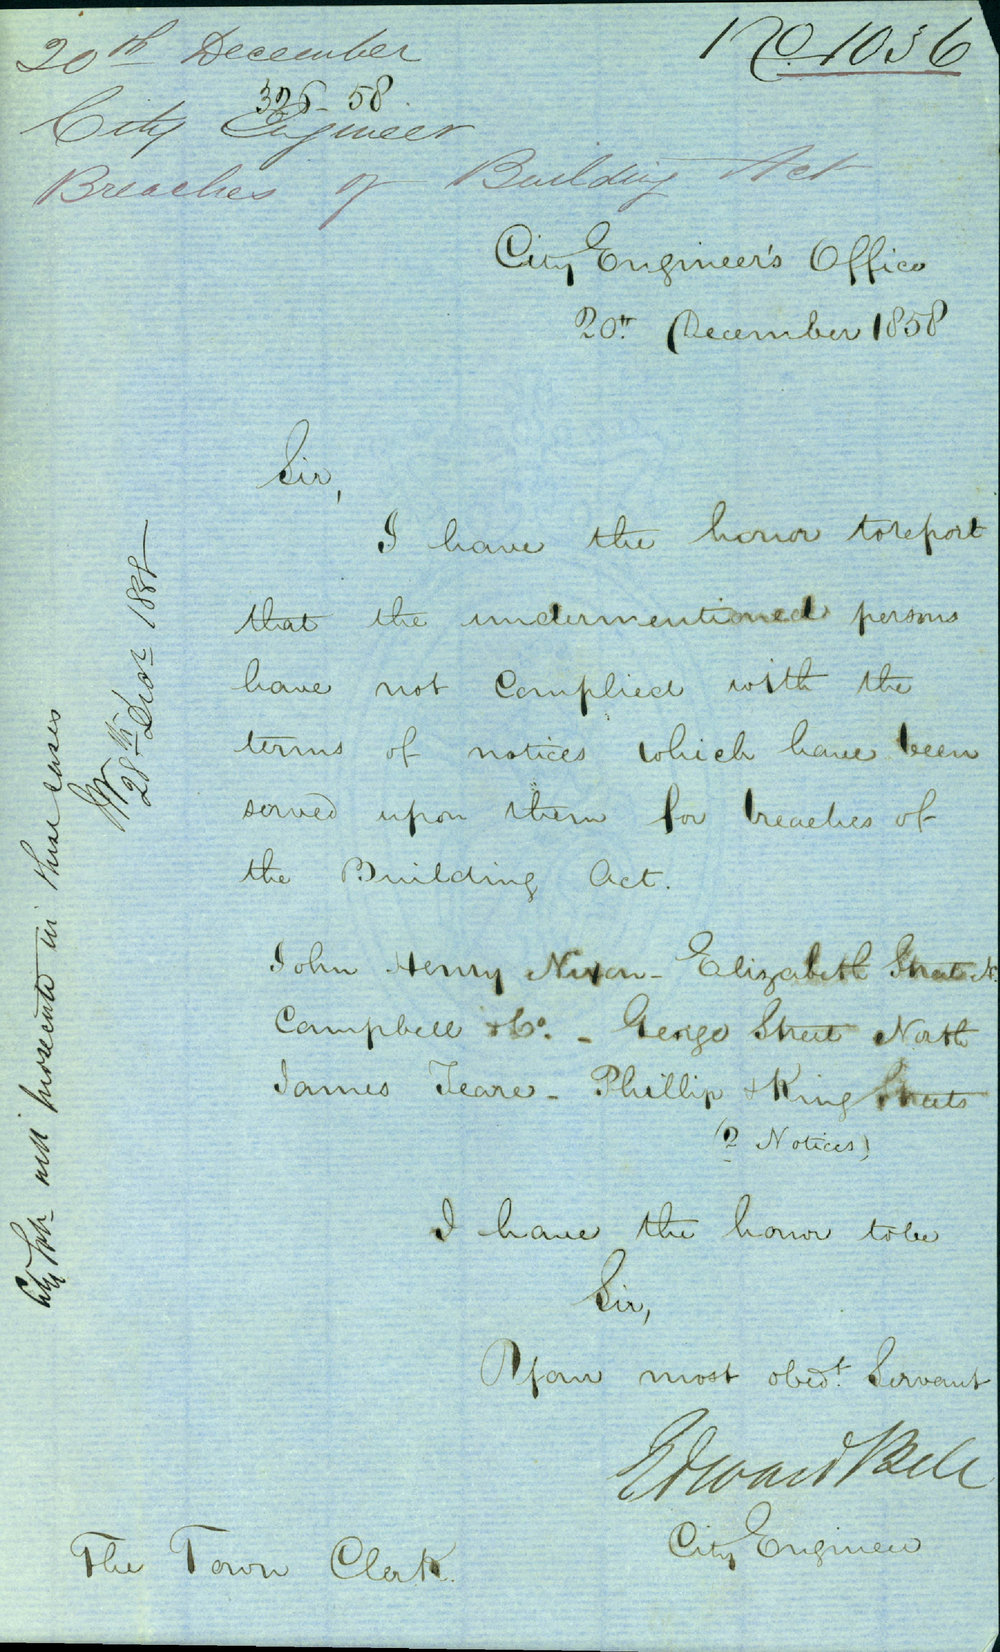 20th December
No. 1036
326-58
City Engineer
Breaches of Building Act
City Engineer's Office
20th December 1858
Sir,
I have the honor to report
that the undermentioned persons
have not complied with the
terms of notices which have been
served upon them for breaches of
the Building Act.
John Henry Nixon - Elizabeth Street N.
Campbell & Co. - George Street North
James Teare - Phillip & King Streets
(2 Notices)
I have the honor to be
Sir,
Your most obedt. Servant
Edward Bell
City Engineer
The Town Clerk.
will prosecute in these cases
28th Decr